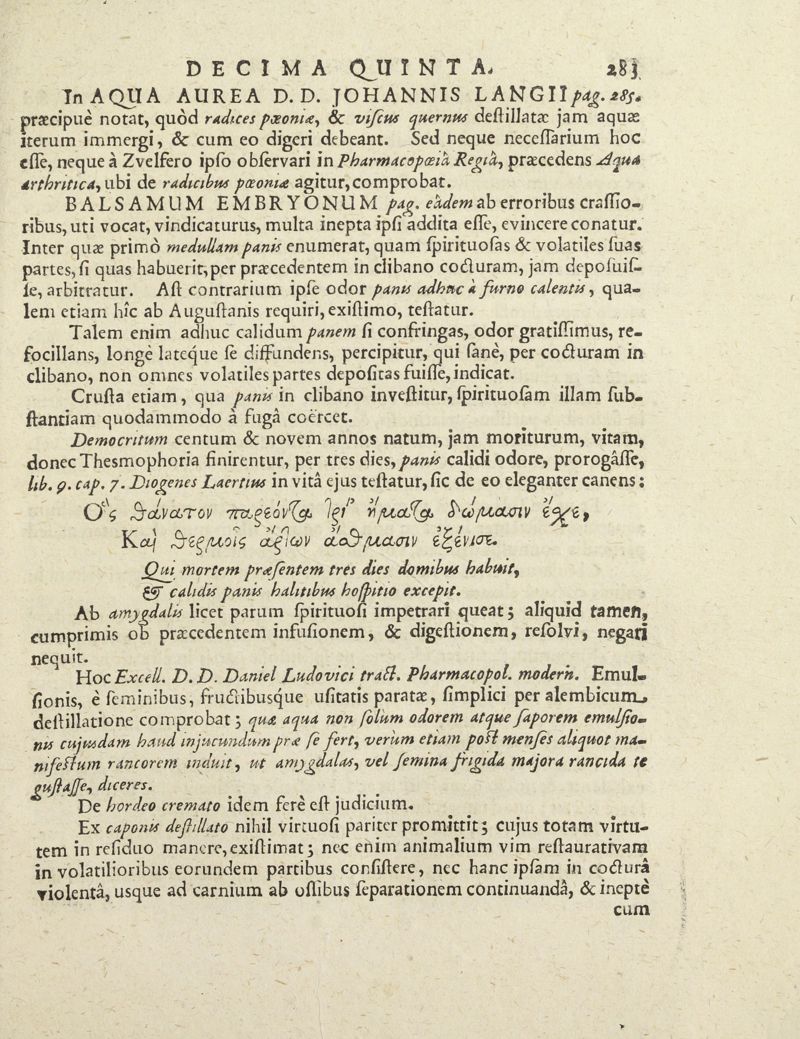 DECIMA QUINTA. 283
In AQUA AUREA D. D. JOHANNIS LANGII pag. 285.
præcipuè notat, quòd radices pæoniæ, & viſcus quernus deſtillatæ jam aquæ
iterum immergi, & cum eo digeri debeant. Sed neque neceſſarium hoc
eſſe, neque à Zvelfero ipſo obſervari in Pharmacopœiâ Regiâ, præcedens Aqua
arthritica, ubi de radicibus pœoniæ agitur, comprobat.
BALSAMUM EMBRYONUM pag. eâdem ab erroribus craſſio-
ribus, uti vocat, vindicaturus, multa inepta ipſi addita eſſe, evincere conatur.
Inter quæ primò medullam panis enumerat, quam ſpirituoſas & volatiles ſuas
partes, ſi quas habuerit, per præcedentem in clibano coƈturam, jam depoſuiſ-
ſe, arbitratur. Aſt contrarium ipſe odor panis adhuc à furno calentis, qua-
lem etiam hîc ab Auguſtanis requiri, exiſtimo, teſtatur.
Talem enim adhuc calidum panem ſi confringas, odor gratiſſimus, re-
focillans, longè latèque ſe diffundens, percipitur, qui ſanè, per coƈturam in
clibano, non omnes volatiles partes depoſitas fuiſſe, indicat.
Cruſta etiam, qua panis in clibano inveſtitur, ſpirituoſam illam ſub-
ſtantiam quodammodo à fugâ coërcet.
Democritum centum & novem annos natum, jam moriturum, vitam,
donec Thesmophoria finirentur, per tres dies, panis calidi odore, prorogâſſe,
lib. 9. cap. 7. Diogenes Laertius in vitâ ejus teſtatur, ſic de eo eleganter canens:
Ὃς θάνατον παρεόντα τρί' ἤματα δώμασιν ἔσχε,
Καὶ θερμοῖς ἄρτων ἄσθμασιν ἐξένισε.
Qui mortem præſentem tres dies domibus habuit,
& calidis panis halitibus hoſpitio excepit.
Ab amygdalis licet parum ſpirituoſi impetrari queat; aliquid tamen,
cumprimis ob præcedentem infuſionem, & digeſtionem, reſolvi, negari
nequit.
Hoc Excell. D. D. Daniel Ludovici traƈt. Pharmacopol. modern. Emul-
ſionis, è ſeminibus, fruƈtibusque uſitatis paratæ, ſimplici per alembicum
deſtillatione comprobat; quæ aqua non ſolum odorem atque ſaporem emulſio-
nis cujusdam haud injucundum præ ſe fert, verùm etiam poſt menſes aliquot ma-
nifeſtum rancorem induit, ut amygdalas, vel ſemina frigida majora rancida te
guſtaſſe, diceres.
De hordeo cremato idem ferè eſt judicium.
Ex caponis deſtillato nihil virtuoſi pariter promittit; cujus totam virtu-
tem in reſiduo manere, exiſtimat; nec enim animalium vim reſtaurativam
in volatilioribus eorundem partibus conſiſtere, nec hanc ipſam in coƈturâ
violentâ, usque ad carnium ab oſſibus ſeparationem continuandâ, & ineptè
cum